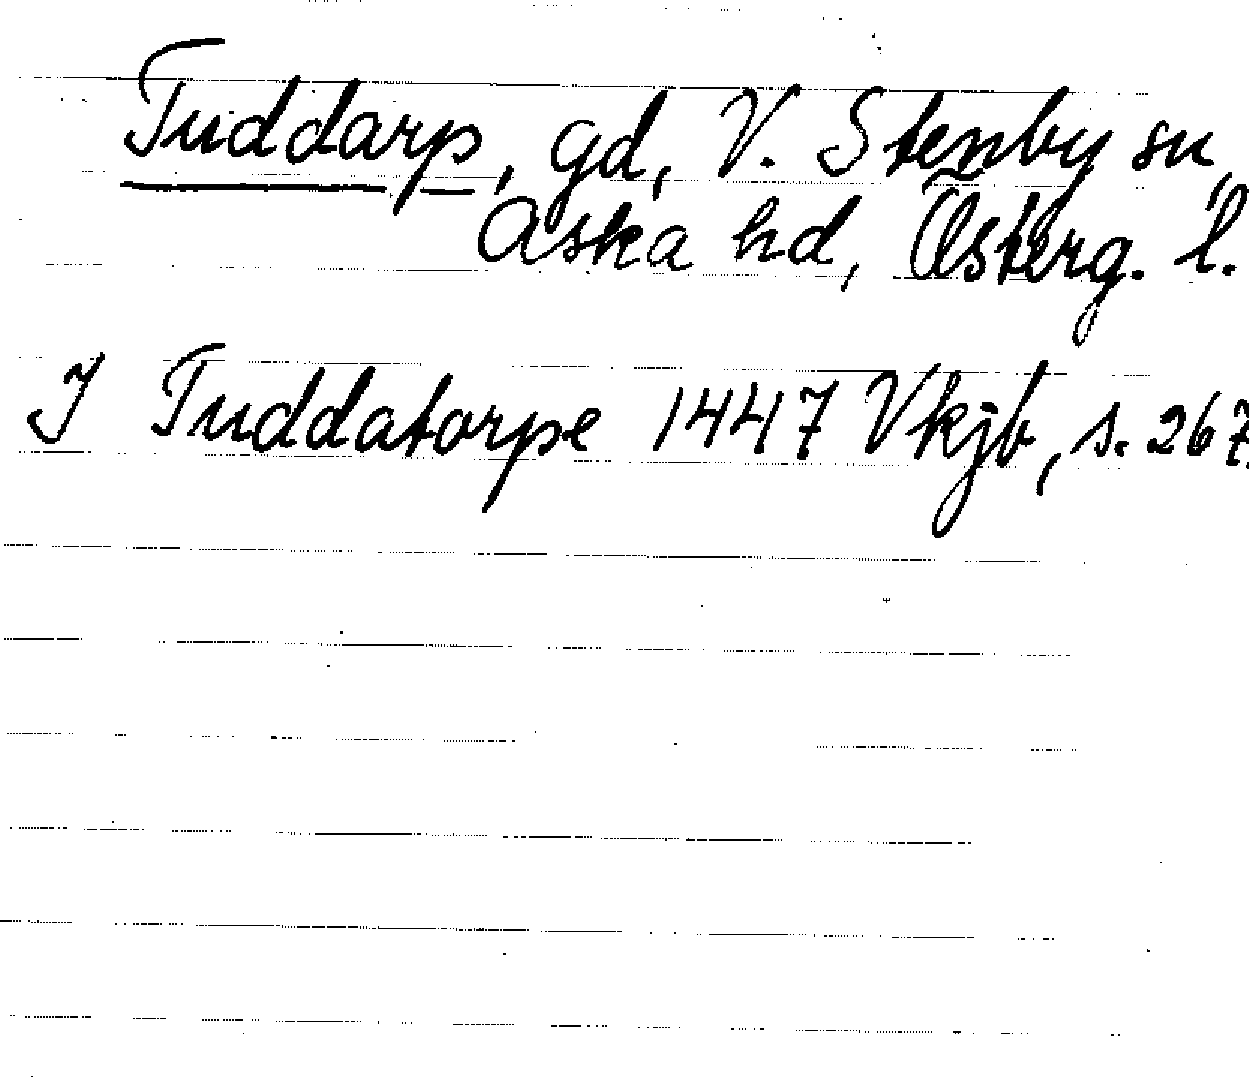 Tuddarp, gd, V. Stenby sn,
Aska hd, Österg. l.
J Tuddatorpe 1447 Vkjb, s. 267.